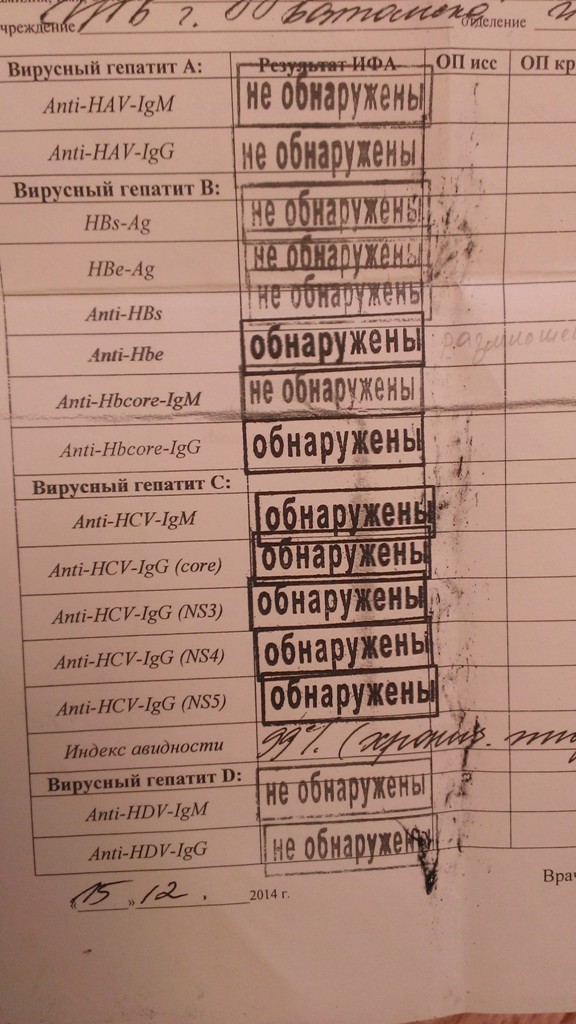 чреждение г. отделение
Вирусный гепатит А: Результат ИФА ОП исс ОП кр
Anti-HAV-IgM не обнаружены
Anti-HAV-IgG не обнаружены
Вирусный гепатит В:
HBs-Ag не обнаружены
HBe-Ag не обнаружены
Anti-HBs не обнаружены
Anti-Hbe обнаружены
Anti-Hbcore-IgM не обнаружены
Anti-Hbcore-IgG обнаружены
Вирусный гепатит С:
Anti-HCV-IgM обнаружены
Anti-HCV-IgG (core) обнаружены
Anti-HCV-IgG (NS3) обнаружены
Anti-HCV-IgG (NS4) обнаружены
Anti-HCV-IgG (NS5) обнаружены
Индекс авидности 99% (хронич.
Вирусный гепатит D:
Anti-HDV-IgM не обнаружены
Anti-HDV-IgG не обнаружены
«15» 12. 2014 г.
Врач